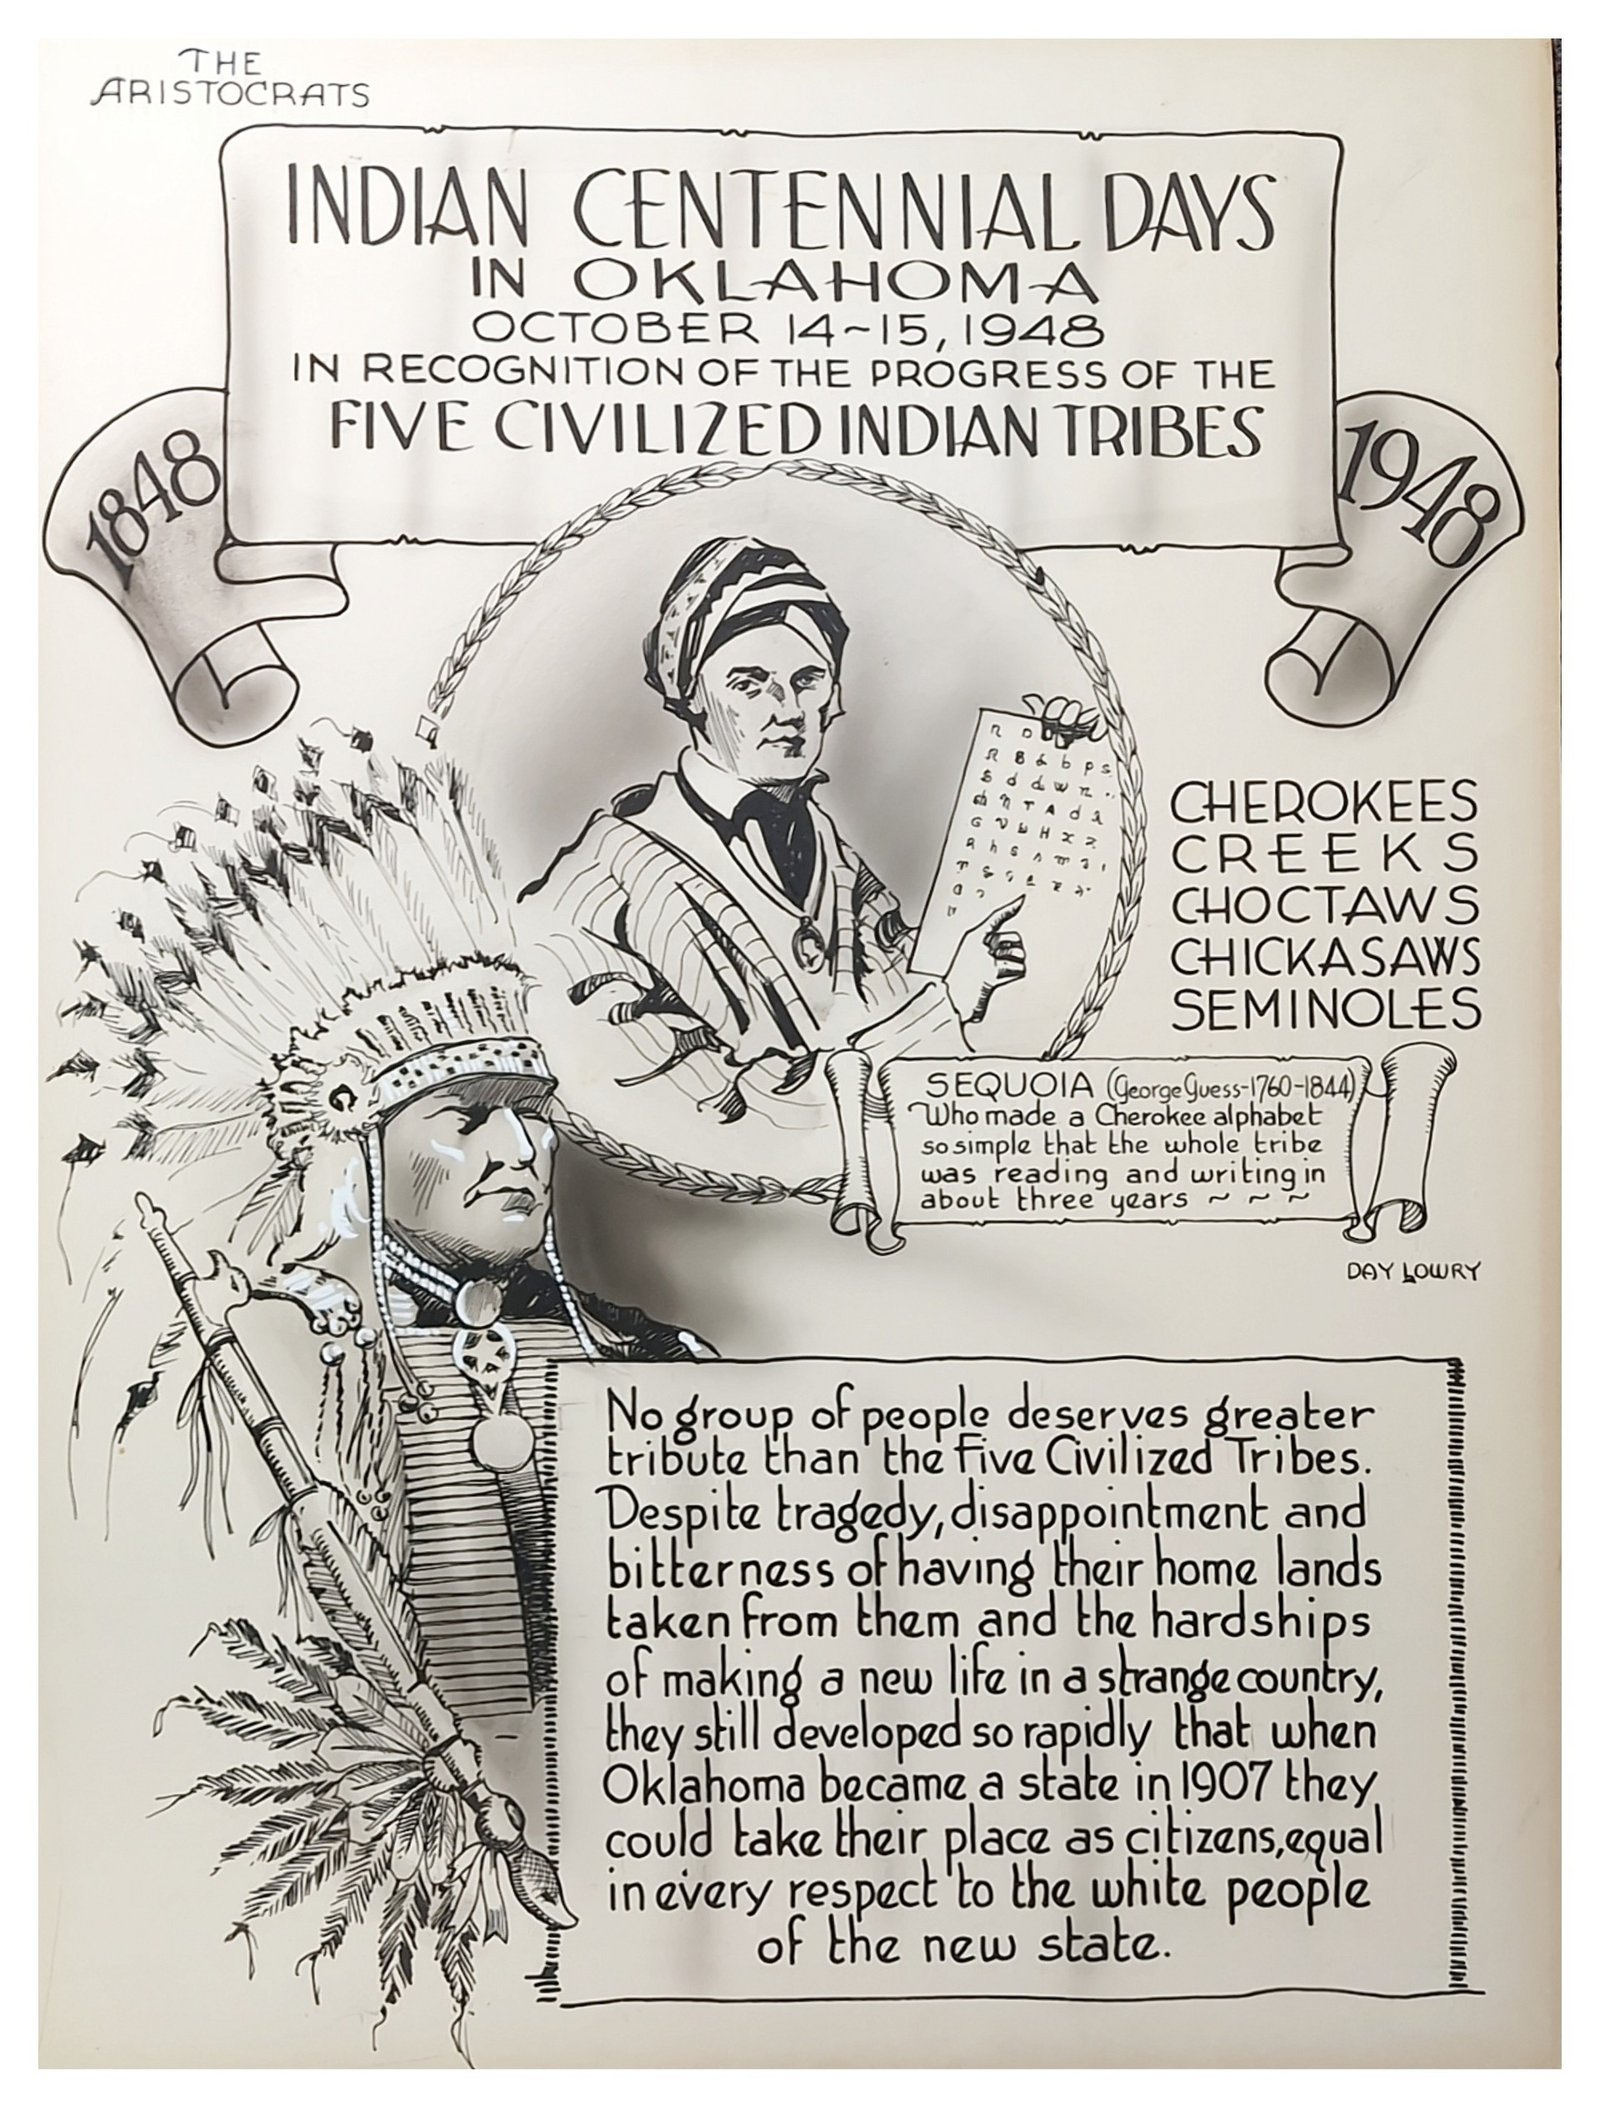 THE
ARISTOCRATS
INDIAN CENTENNIAL DAYS
IN OKLAHOMA
OCTOBER 14~15, 1948
IN RECOGNITION OF THE PROGRESS OF THE
FIVE CIVILIZED INDIAN TRIBES
1848
1948
CHEROKEES
CREEKS
CHOCTAWS
CHICKASAWS
SEMINOLES
SEQUOIA (George Guess-1760-1844)
Who made a Cherokee alphabet
so simple that the whole tribe
was reading and writing in
about three years ~ ~ ~
DAY LOWRY
No group of people deserves greater
tribute than the Five Civilized Tribes.
Despite tragedy, disappointment and
bitterness of having their home lands
taken from them and the hardships
of making a new life in a strange country,
they still developed so rapidly that when
Oklahoma became a state in 1907 they
could take their place as citizens, equal
in every respect to the white people
of the new state.